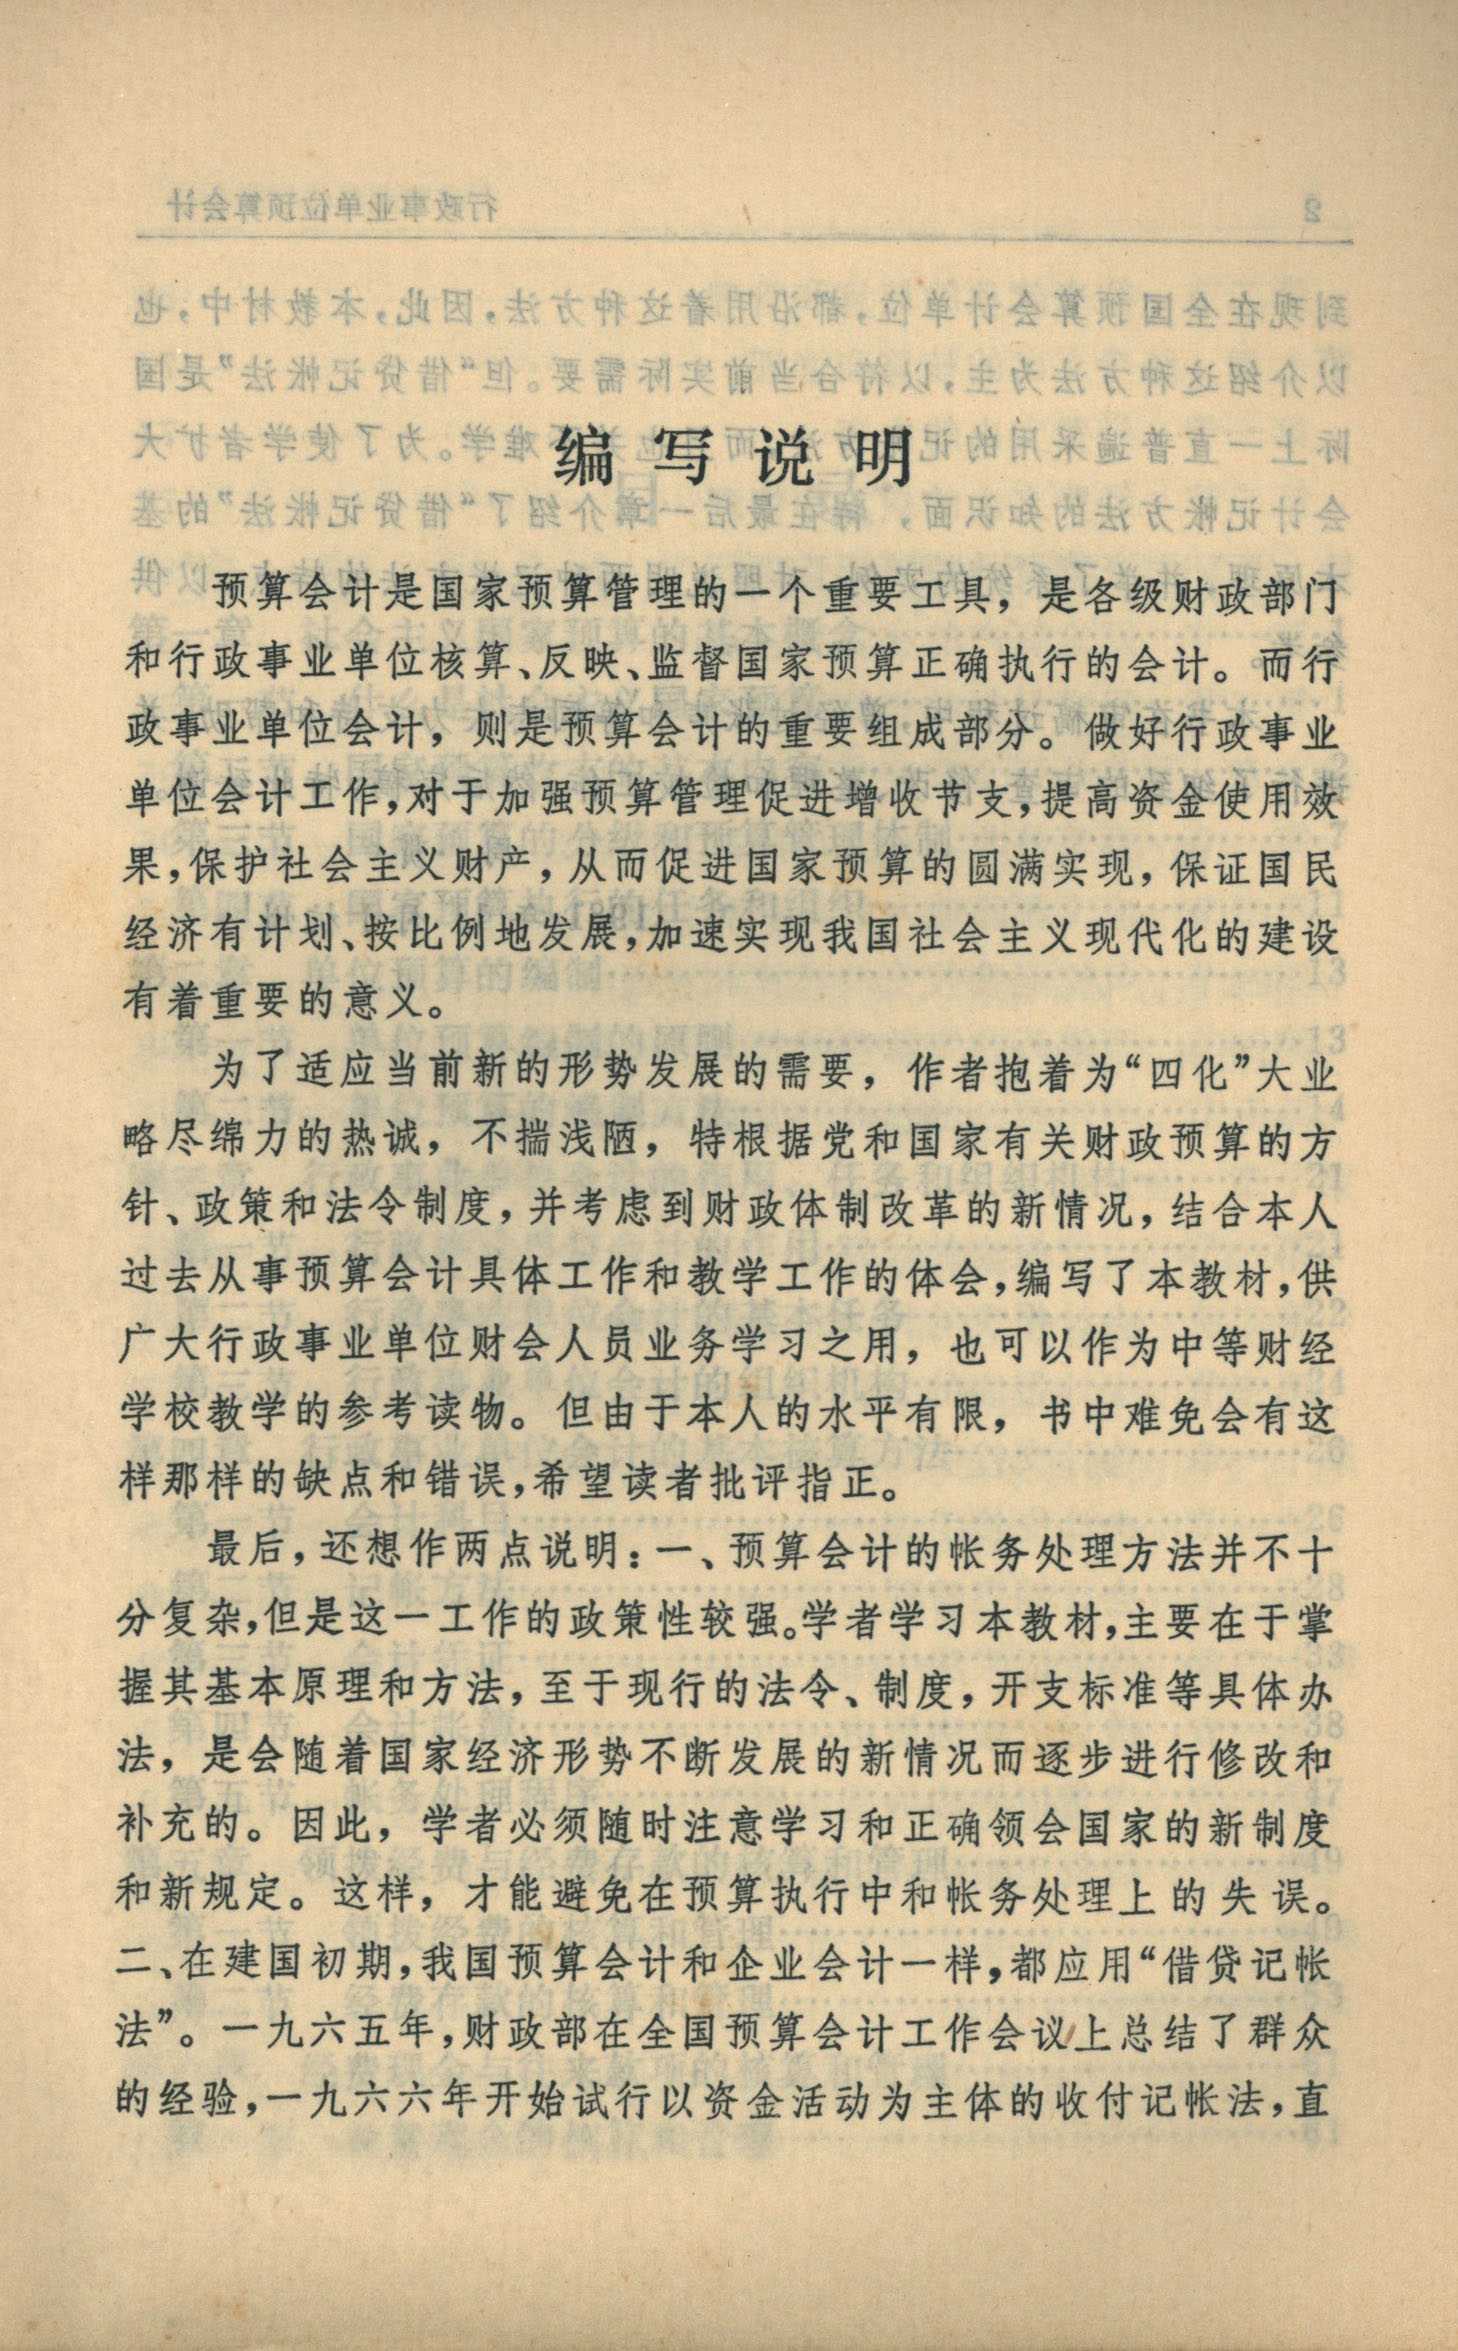 编写说明
预算会计是国家预算管理的一个重要工具，是各级财政部门
和行政事业单位核算、反映、监督国家预算正确执行的会计。而行
政事业单位会计，则是预算会计的重要组成部分。做好行政事业
单位会计工作，对于加强预算管理促进增收节支，提高资金使用效
果，保护社会主义财产，从而促进国家预算的圆满实现，保证国民
经济有计划、按比例地发展，加速实现我国社会主义现代化的建设
有着重要的意义。
为了适应当前新的形势发展的需要，作者抱着为“四化”大业
略尽绵力的热诚，不揣浅陋，特根据党和国家有关财政预算的方
针、政策和法令制度，并考虑到财政体制改革的新情况，结合本人
过去从事预算会计具体工作和教学工作的体会，编写了本教材，供
广大行政事业单位财会人员业务学习之用，也可以作为中等财经
学校教学的参考读物。但由于本人的水平有限，书中难免会有这
样那样的缺点和错误，希望读者批评指正。
最后，还想作两点说明：一、预算会计的帐务处理方法并不十
分复杂，但是这一工作的政策性较强。学者学习本教材，主要在于掌
握其基本原理和方法，至于现行的法令、制度，开支标准等具体办
法，是会随着国家经济形势不断发展的新情况而逐步进行修改和
补充的。因此，学者必须随时注意学习和正确领会国家的新制度
和新规定。这样，才能避免在预算执行中和帐务处理上的失误。
二、在建国初期，我国预算会计和企业会计一样，都应用“借贷记帐
法”。一九六五年，财政部在全国预算会计工作会议上总结了群众
的经验，一九六六年开始试行以资金活动为主体的收付记帐法，直